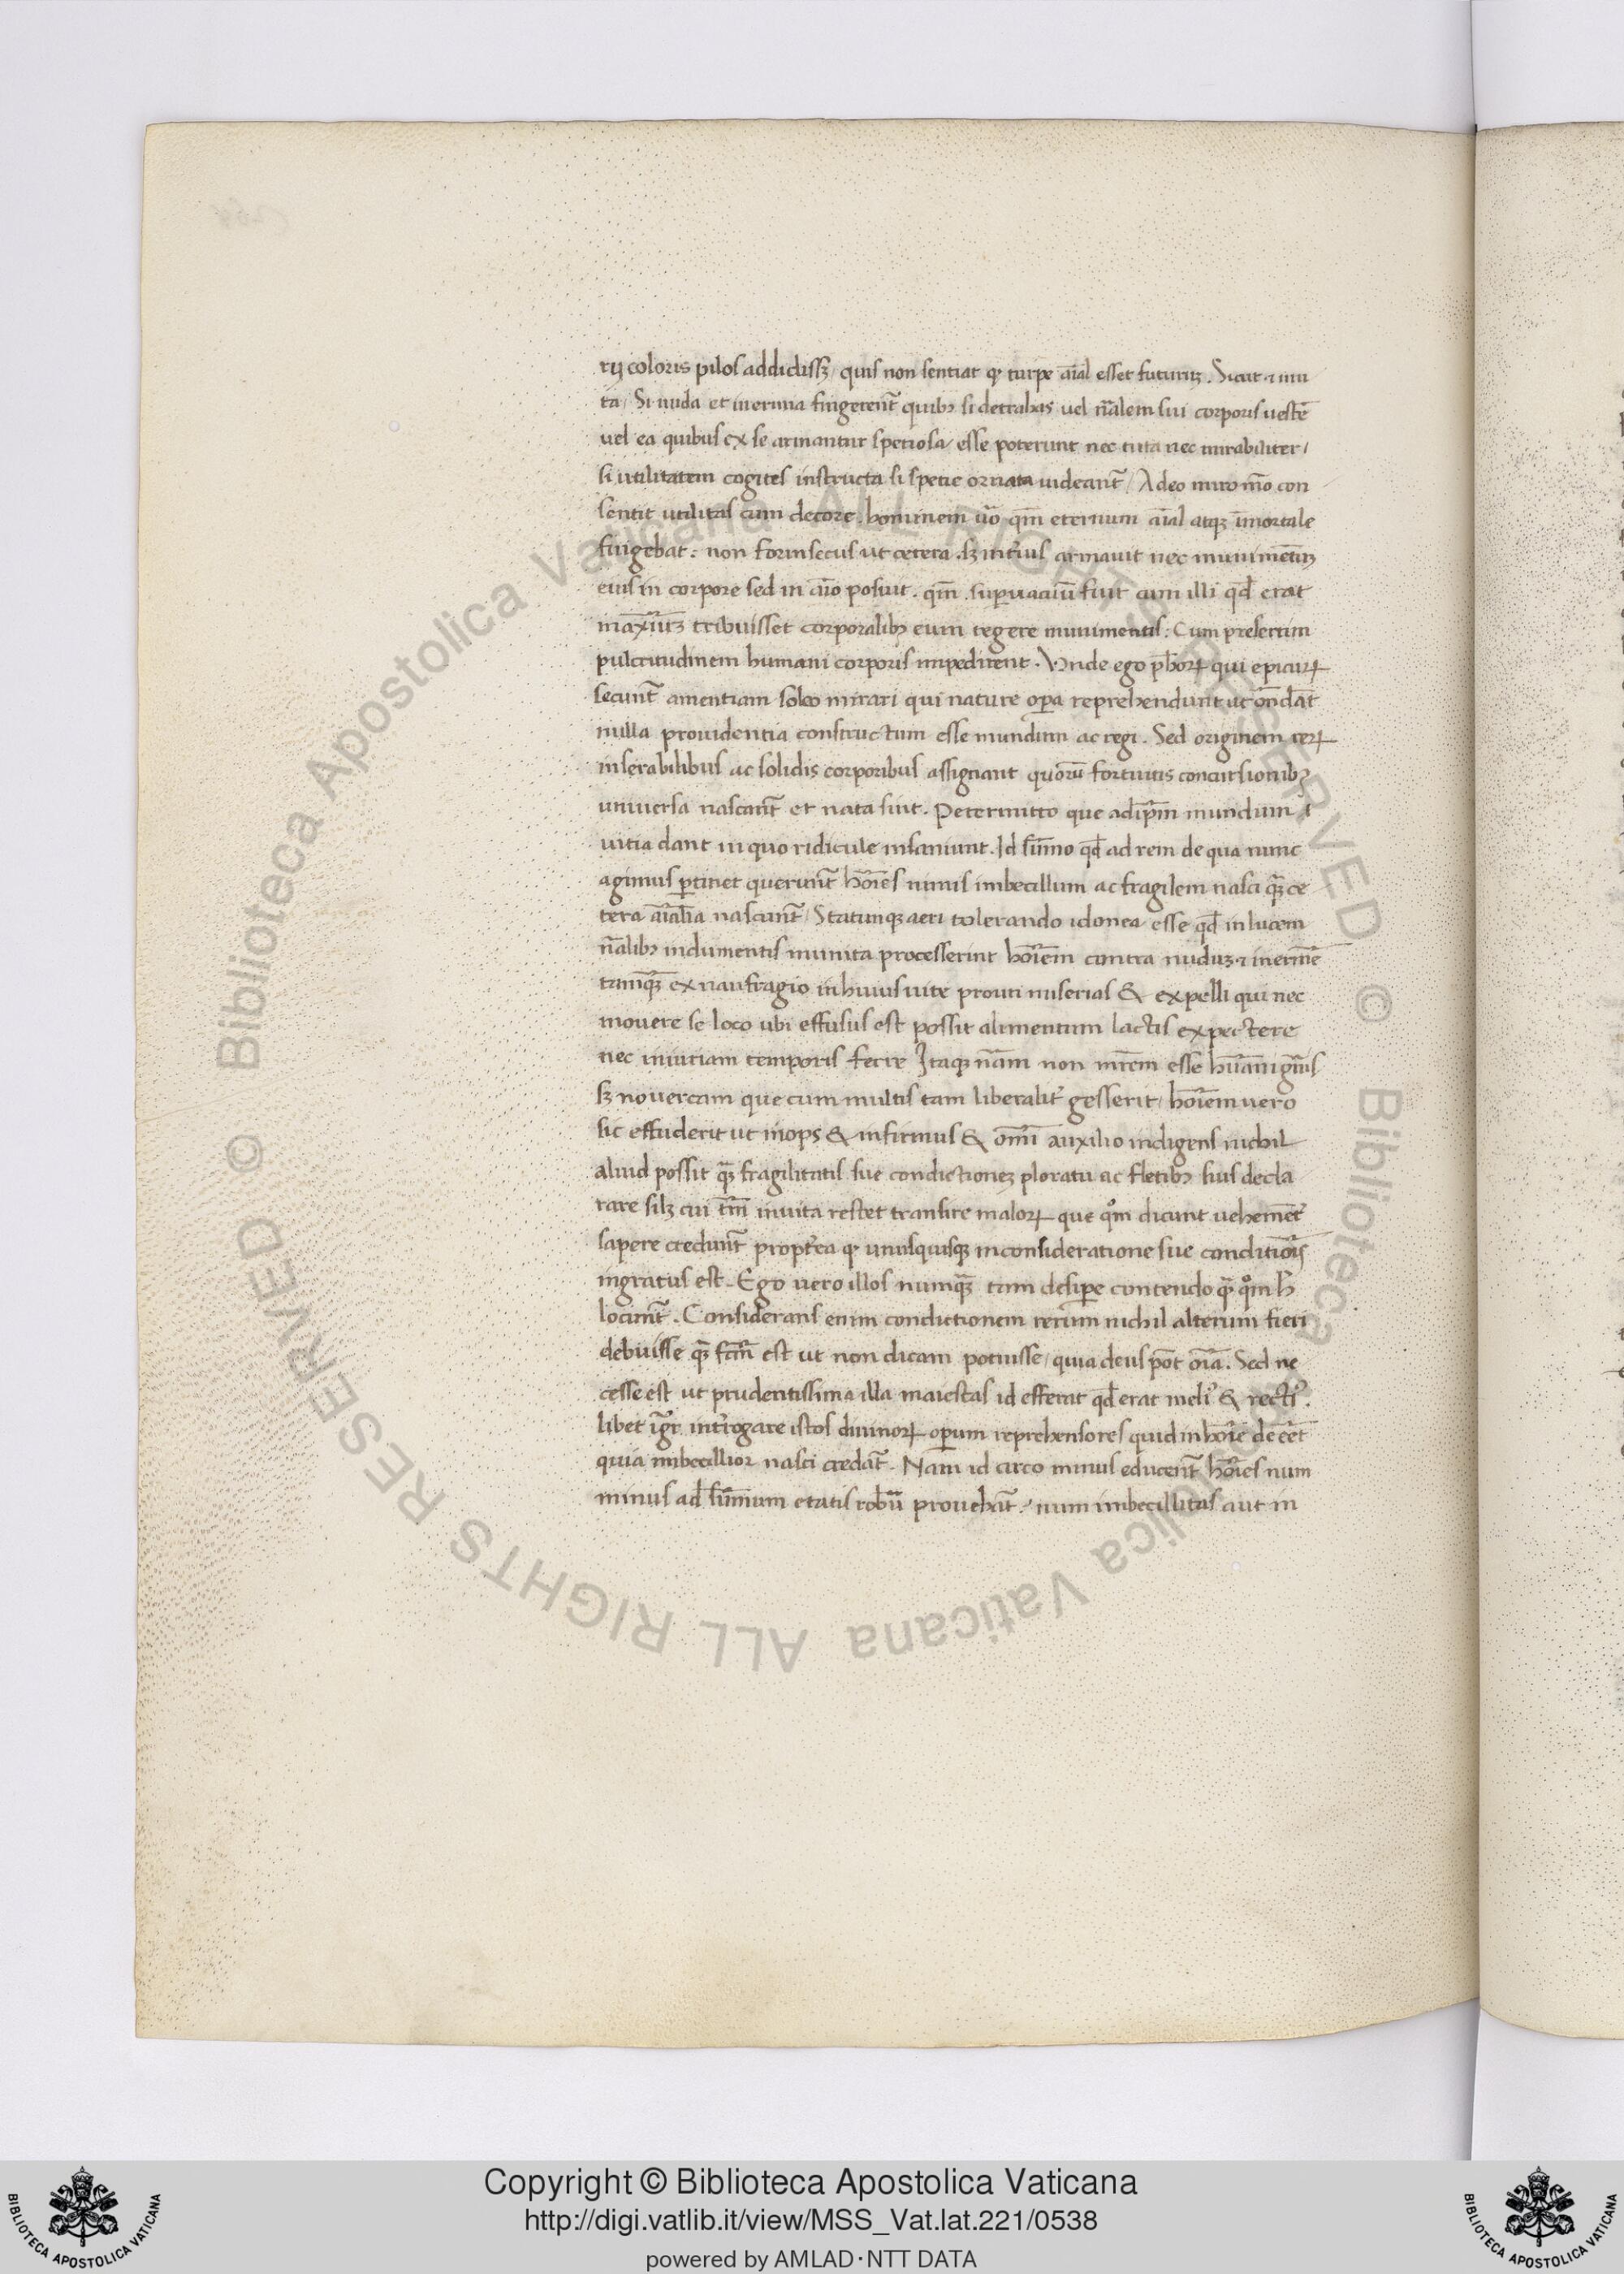 rij coloris pilos addidissꝫ / quis non sentiat ꝙ turpe aīal esset futurūꝫ. Sicut ⁊ mu
ta / Si nuda et inermia fingerent᷑ quibꝫ si detrahas uel nr̄alem sui corporis uestē
uel ea quibus ex se armantur spetiosa / esse poterunt nec tuta nec mirabiliter /
si utilitatem cogites instructa si spetie ornata uideant᷑ / Adeo miro mō con
sentit utilitas cum decore. hominem ūo qm̄ eternum aīal atqꝫ īmortale
fingebat: non forinsecus ut cetera. sꝫ inteꝛius armauit nec munimētūꝫ
eius in corpore sed in aīo posuit. qm̄ suꝑuacuū fuit cum illi qđ erat
maxīūꝫ tribuisset corporalibꝫ eum tegere munimentis: Cum presertim
pulcritudinem humani corporis impedirent. Vnde ego ph̄orꝝ qui epicurꝝ
secunt᷑ amentiam soleo mirari qui nature oꝑa reprehendunt ut ondāt
nulla prouidentia constructum esse mundum ac regi. Sed originem rerꝝ
inserabilibus ac solidis corporibus assignant quorū fortuitis concursionibꝫ
uniuersa nascant᷑ et nata sint. Petermitto que ad ip̄m mundum ⁊
uitia dant in quo ridicule insaniunt. Id sūmo qđ ad rem de qua nunc
agimus ꝑtinet querunt᷑ hōies nimis imbecillum ac fragilem nasci q̄ꝫ ce
tera aīalia nascunt᷑ / Statimqꝫ aeri tolerando idonea esse qđ in lucem
nr̄alibꝫ indumentis munita processerint hōiem contra nuduꝫ ⁊ inermē
tamq̄ꝫ ex naufragio in huius uite prouti miserias & expelli qui nec
mouere se loco ubi effusus est possit alimentum lactis expectere
nec iniuriam temporis ferre Itaqꝫ nr̄am non mr̄em esse hūani gn̄is
sꝫ nouercam que cum multis tam liberalit᷑ gesserit / hōiem uero
sic effuderit ut inops & infirmus & om̄i auxilio indigens nichil
aliud possit q̄ꝫ fragilitatis sue condictioneꝫ ploratu ac fletibꝫ suis decla
rare silꝫ cui tm̄ inuita restet transire malorꝝ que qm̊ dicunt uehemēt᷑
sapere credunt᷑ propt᷑ea ꝙ unusquisqꝫ inconsideratione sue conditiōis
ingratus est. Ego uero illos numq̄ꝫ tam desipe contendo q̄ꝫ qm̊ h̄
locunt᷑. Considerans enim condictionem rerum nichil alterum fieri
debuisse q̄ꝫ fcm̄ est ut non dicam potuisse / quia deus pōt oīa. Sed ne
cesse est ut prudentissima illa maiestas id efferat qđ erat meli᷒ & recti᷒.
libet igr̄ int᷑rogare istos diuinorꝝ oꝑum reprehensores quid in hōie dēēēt
quia imbecillior nasci credāt. Nam id circo minus educent᷑ hōies num
minus ad sūmum etatis robū prouehūt᷑: num imbecillitas aut in
Copyright © Biblioteca Apostolica Vaticana
http://digi.vatlib.it/view/MSS_Vat.lat.221/0538
powered by AMLAD·NTT DATA